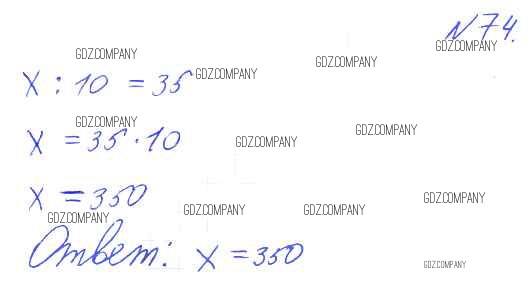 N74.
GDZ.COMPANY
GDZ.COMPANY
GDZ.COMPANY
GDZ.COMPANY
X : 10 = 35
GDZ.COMPANY
GDZ.COMPANY
GDZ.COMPANY
X = 35 · 10
X = 350
GDZ.COMPANY
GDZ.COMPANY
GDZ.COMPANY
GDZ.COMPANY
Ответ: X = 350
GDZ.COMPANY